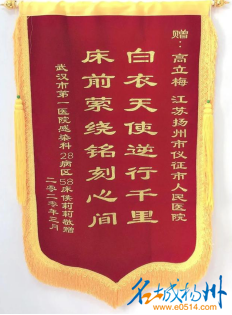 赠：高立梅 江苏扬州市仪征市人民医院
白衣天使逆行千里
床前萦绕铭刻心间
武汉市第一医院感染科28病区58床侯莉莉敬赠
二〇二〇年三月
名城扬州
www.e0514.com